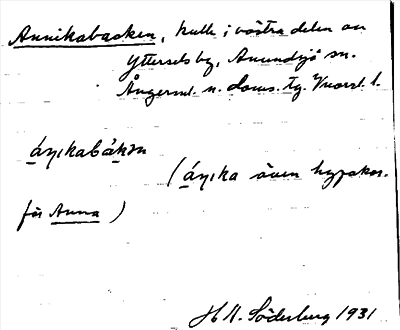 Annikabacken, kulle i västra delen av
Yttersels by, Anundsjö sn.
Ångerml. n. doms. tg. Vnorrl. l.
ánικabákƨn
(ánικa även hypokor.
för Anna)
H. N. Söderberg 1931